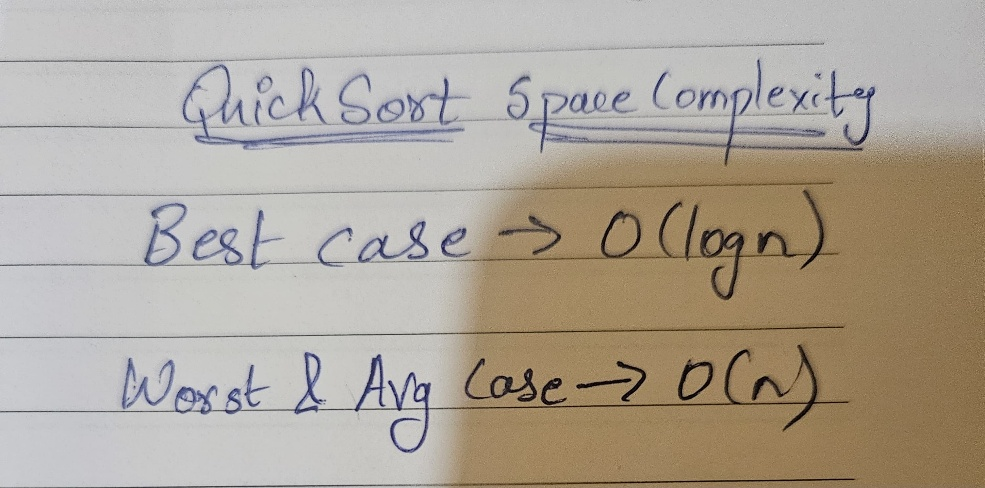 QuickSort Space Complexity
Best case → O(logn)
Worst & Avg Case → O(n)